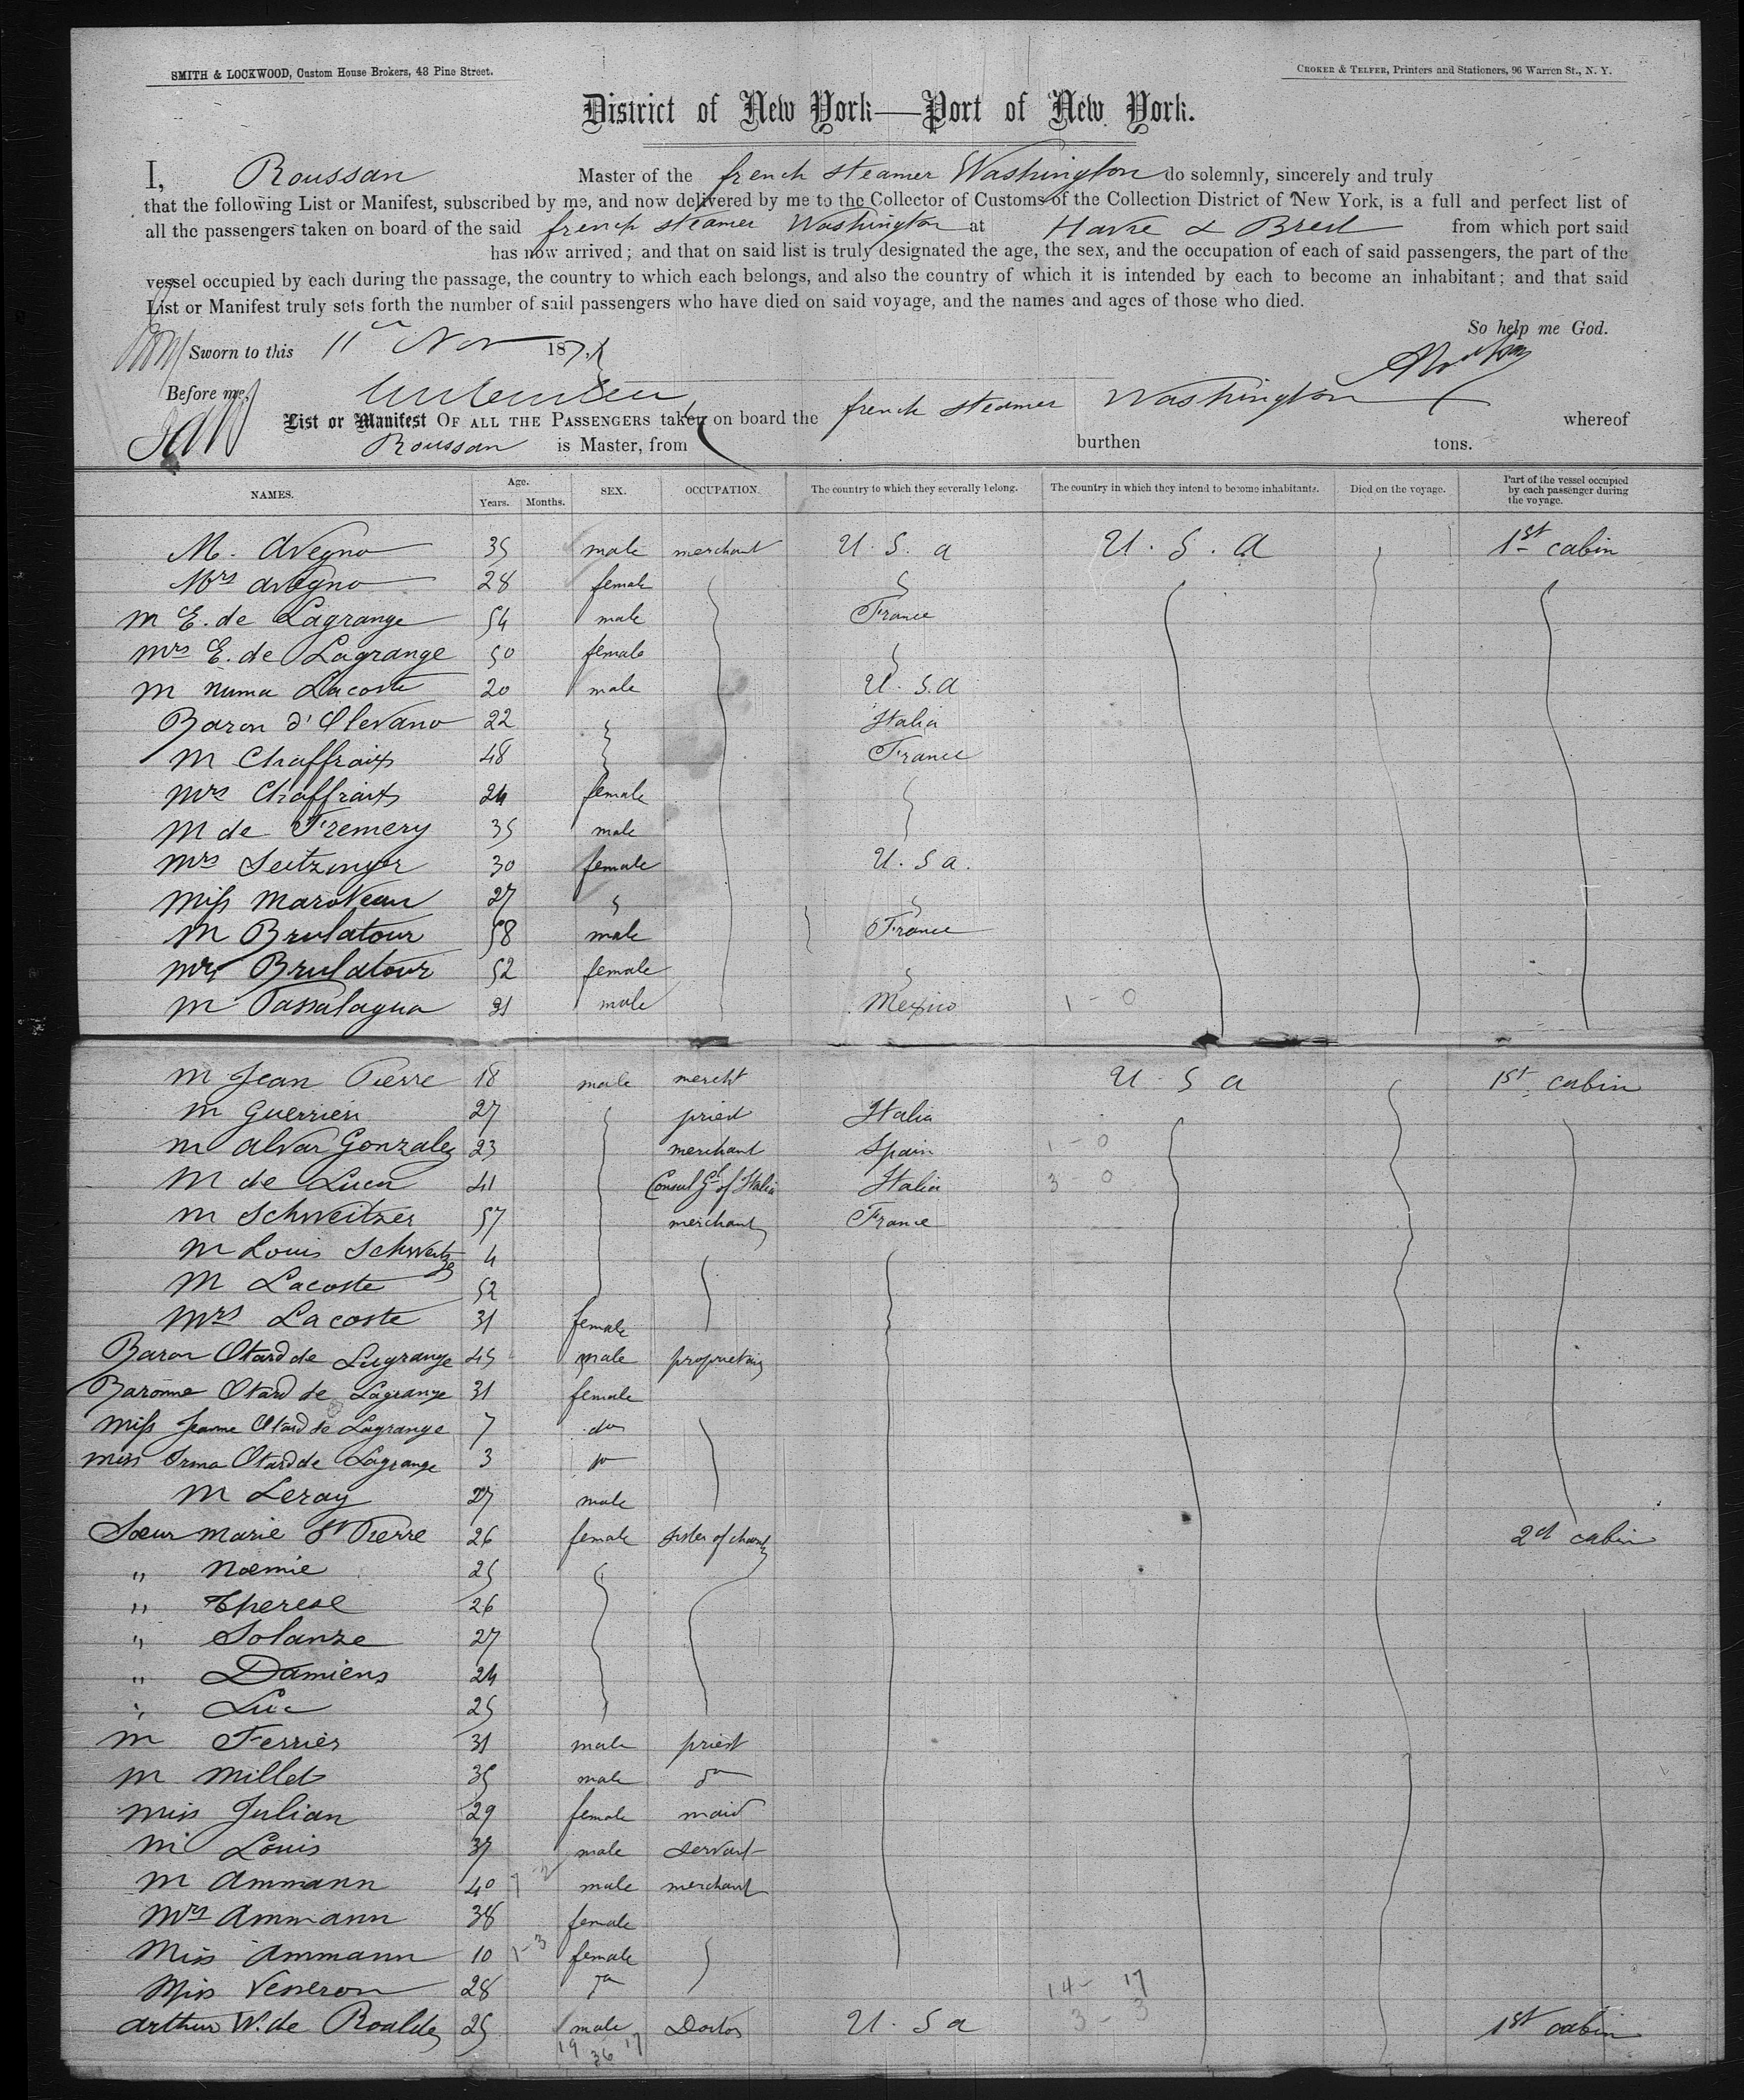 SMITH & LOCKWOOD, Custom House Brokers, 43 Pine Street.
CROKER & TELFER, Printers and Stationers, 96 Warren St., N. Y.
District of New York—Port of New York.
I, Roussan Master of the french steamer Washington do solemnly, sincerely and truly
that the following List or Manifest, subscribed by me, and now delivered by me to the Collector of Customs of the Collection District of New York, is a full and perfect list of
all the passengers taken on board of the said french steamer Washington at Havre & Brest from which port said
has now arrived; and that on said list is truly designated the age, the sex, and the occupation of each of said passengers, the part of the
vessel occupied by each during the passage, the country to which each belongs, and also the country of which it is intended by each to become an inhabitant; and that said
List or Manifest truly sets forth the number of said passengers who have died on said voyage, and the names and ages of those who died.
So help me God.
Sworn to this 11th Nov 187
Before me,
List or Manifest OF ALL THE PASSENGERS taken on board the french steamer Washington whereof
Roussan is Master, from burthen tons.
NAMES. Age. Years. Months. SEX. OCCUPATION. The country to which they severally belong. The country in which they intend to become inhabitants. Died on the voyage. Part of the vessel occupied by each passenger during the voyage.
M. Avegno 35 male merchant U. S. a U. S. a 1st cabin
Mrs avegno 28 female
M E. de Lagrange 54 male France
Mrs E. de Lagrange 50 female
M Numa Lacoste 20 male U. S. a
Baron d'Olevano 22 Italia
M Chaffraix 48 France
Mrs Chaffraix 24 female
M de Fremery 35 male
Mrs Seitzinger 30 female U. S a.
Miss Maroteau 27
M Brulatour 58 male France
Mrs Brulatour 52 female
M Passalagua 31 male Mexico 1 - 0
M Jean Pierre 18 male mercht U. S a 1st cabin
M Guerrieri 27 priest Italia
M alvar Gonzalez 23 merchant Spain 1 - 0
M de Luca 41 Consul Gl of Italia Italia 3 - 0
M Schweitzer 57 merchant France
M Louis Schweitzer 4
M Lacoste 52
Mrs Lacoste 31 female
Baron Otard de Lagrange 45 male
Baronne Otard de Lagrange 31 female
Miss Jeanne Otard de Lagrange 7 do
Miss Irma Otard de Lagrange 3 do
M Leray 27 male
Sœur Marie St Pierre 26 female sister of charity 2d cabin
" Noemie 25
" Therese 26
" Solanze 27
" Damiens 24
" Luc 25
M Ferrier 31 male priest
M Millet 35 male do
Miss Julian 29 female maid
M Louis 37 male servant
M Ammann 40 male merchant
Mrs Ammann 38 female
Miss Ammann 10 1-3 female
Miss Vesseron 28 do 14 - 17
Arthur W. de Roaldes 25 male Doctor U. S a 3 - 3 1st cabin
19 36 17